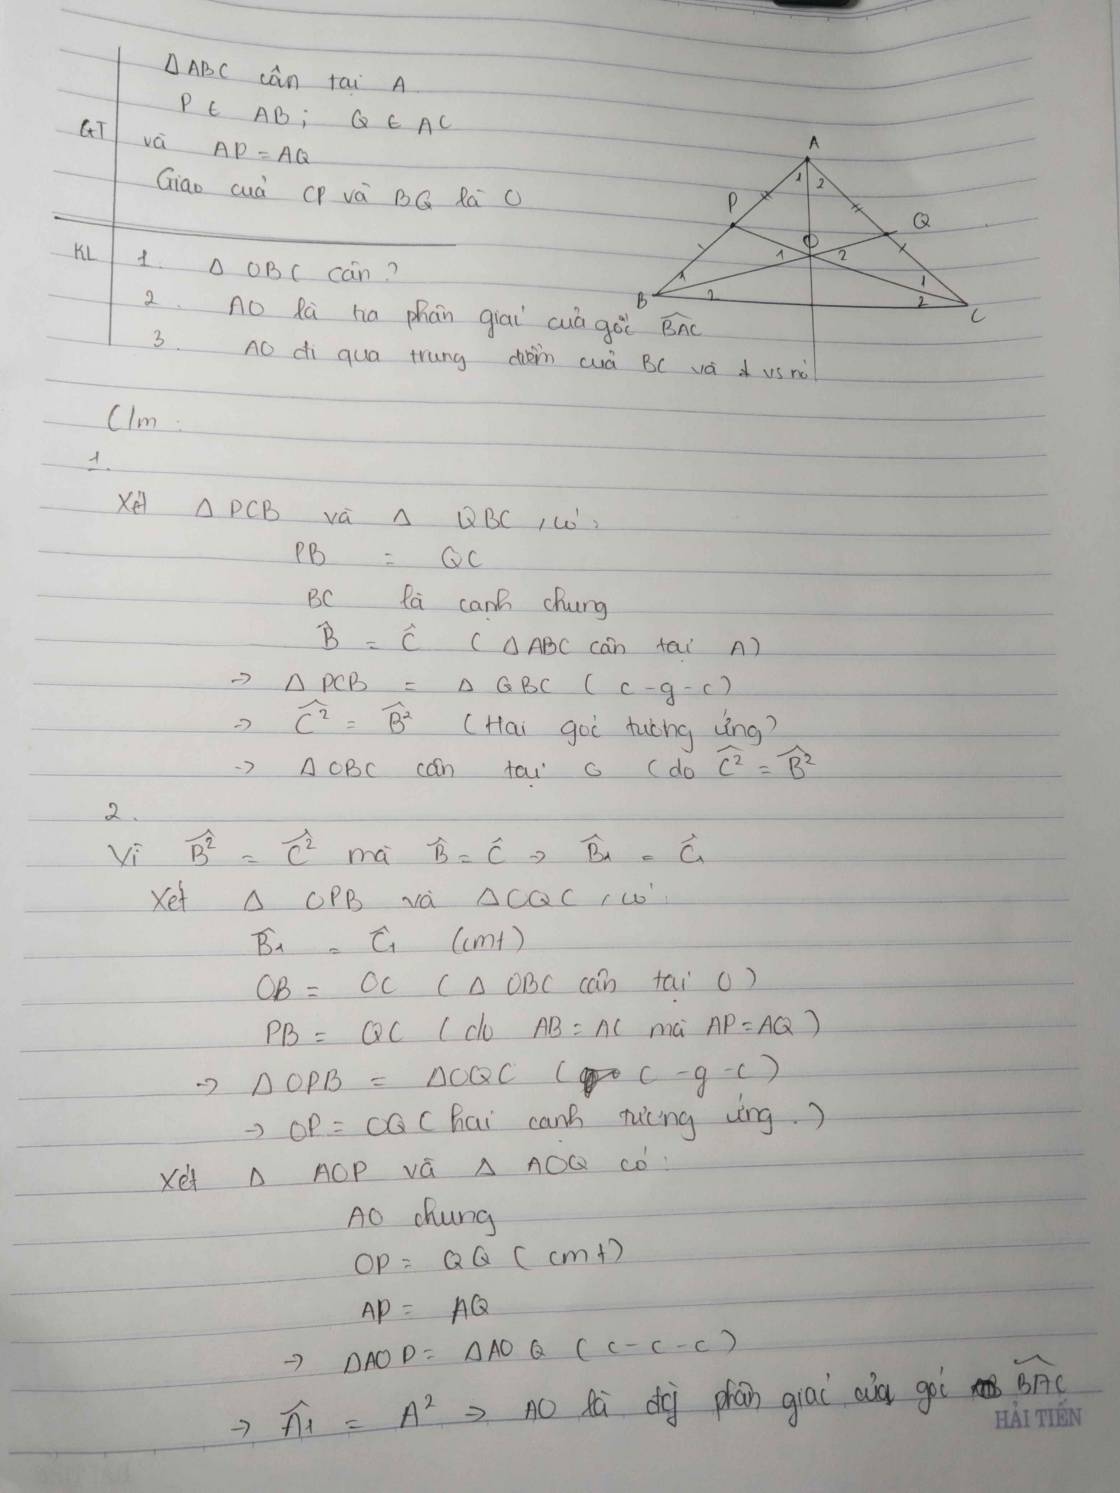 ΔABC cân tại A
P ∈ AB; Q ∈ AC
GT và AP = AQ
Giao cuả CP và BQ là O
KL 1. Δ OBC cân?
2. AO là tia phân giai cuả gốc BAC
3. AO đi qua trung điểm cuả BC và ⊥ vs nó
A
1 2
P
Q
O
1 2
1
1
B 2
2
C
C/m:
1.
Xét Δ PCB và Δ QBC, có:
PB = QC
BC là cạnh chung
B̂ = Ĉ (ΔABC cân tại A)
→ Δ PCB = Δ QBC (c-g-c)
→ Ĉ² = B̂² (Hai goć tương ứng)
→ Δ OBC cân tại O (do Ĉ² = B̂²
2.
Vì B̂² = Ĉ² mà B̂ = Ĉ → B̂₁ = Ĉ₁
Xét Δ OPB và ΔOQC, có:
B̂₁ = Ĉ₁ (cmt)
OB = OC (Δ OBC cân tại O)
PB = QC (do AB = AC mà AP = AQ)
→ Δ OPB = ΔOQC (c-g-c)
→ OP = OQ (hai cạnh tương ứng.)
Xét Δ AOP và Δ AOQ có:
AO chung
OP = QQ (cmt)
AP = AQ
→ ΔAOP = ΔAOQ (c-c-c)
→ Â₁ = A² → AO là phân giać cuả goć BAC
HẢI TIẾN